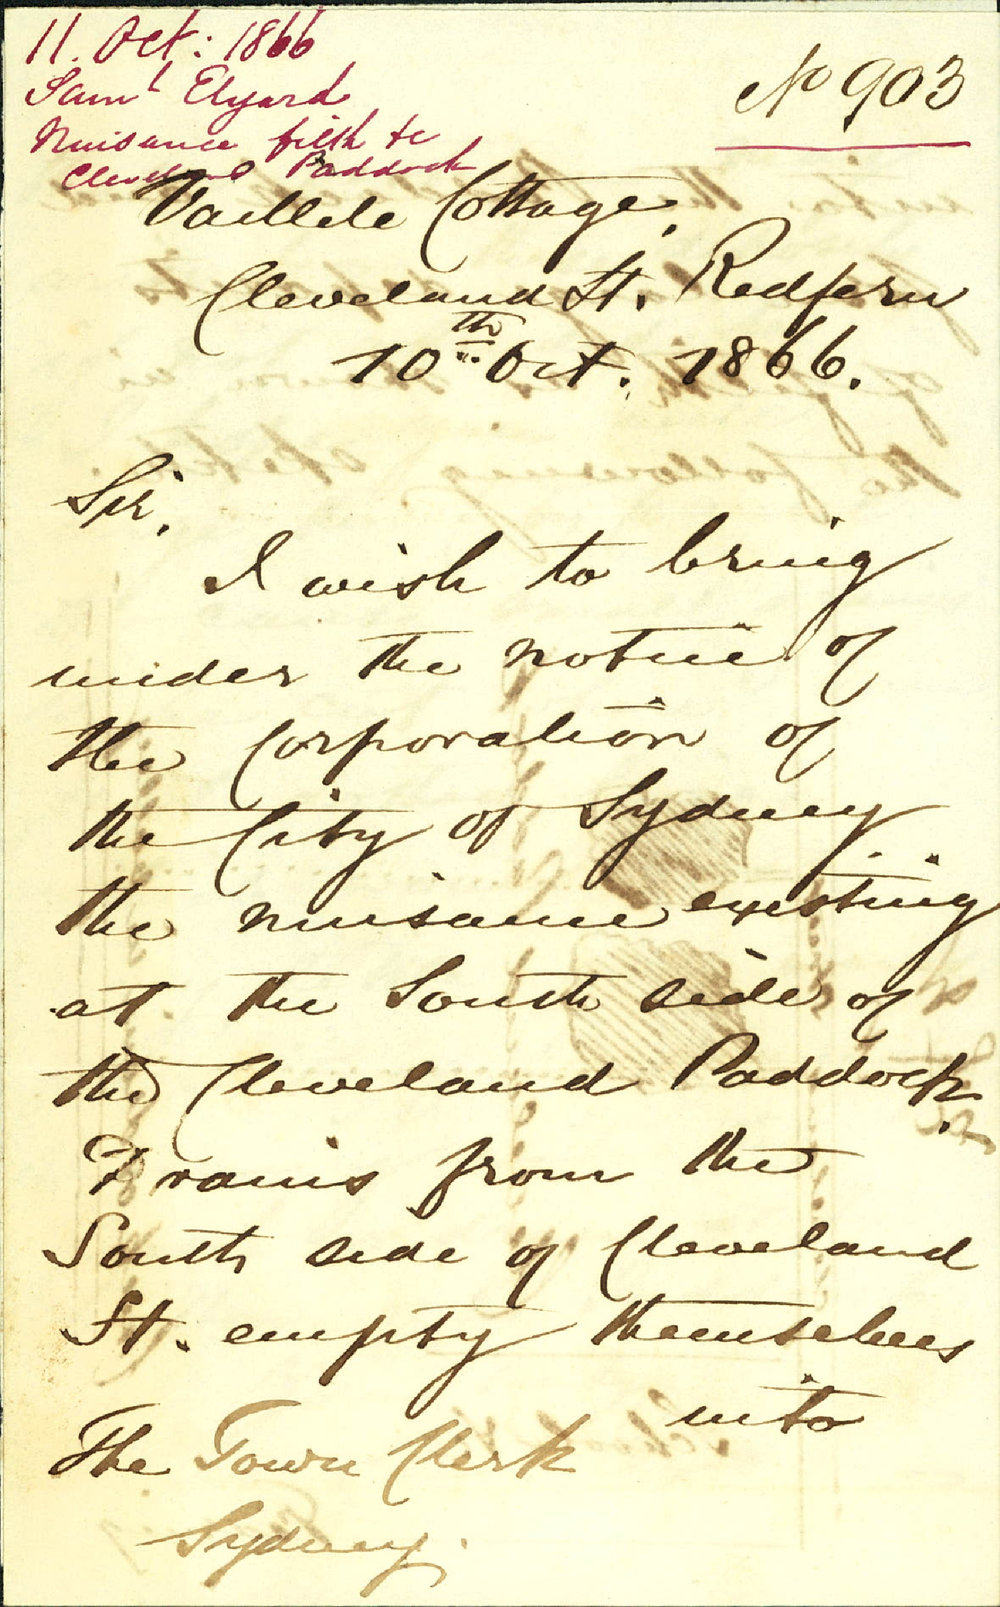 11. Oct: 1866
Saml Elyard
Nuisance filth &c
Cleveland Paddock
No 903
Cottage,
Cleveland St. Redfern
10th Oct. 1866.
Sir,
I wish to bring
under the notice of
the Corporation of
the City of Sydney
the nuisance existing
at the South side of
the Cleveland Paddock.
Drains from the
South side of Cleveland
St. empty themselves
into
The Town Clerk
Sydney.